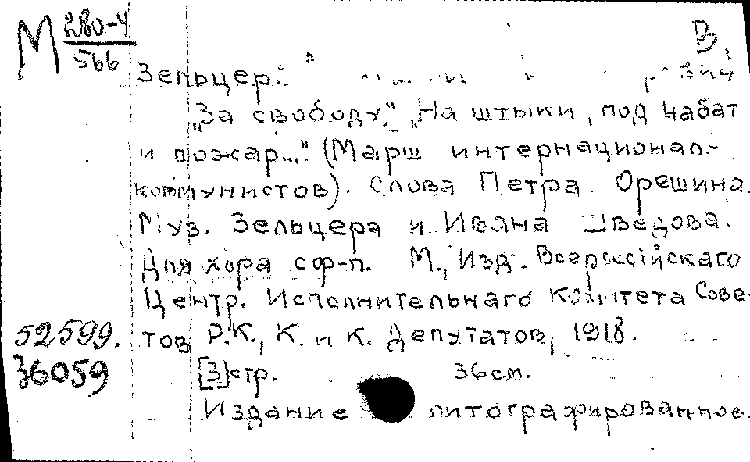 М 280-4
566
В.
Зельцер.
"За свободу." "На штыки, под набат
и пожар..." (Марш интернационал.-
коммунистов). Слова Петра Орешина.
Муз. Зельцера и Ивана Шведова.
Для хора с ф-п. М., Изд. Всероссійскаго
Центр. Исполнительнаго Комитета Сове-
52599. тов Р.К., К. и К. Депутатов, 1918.
36059 [3] стр. 36 см.
Издание литографированное.